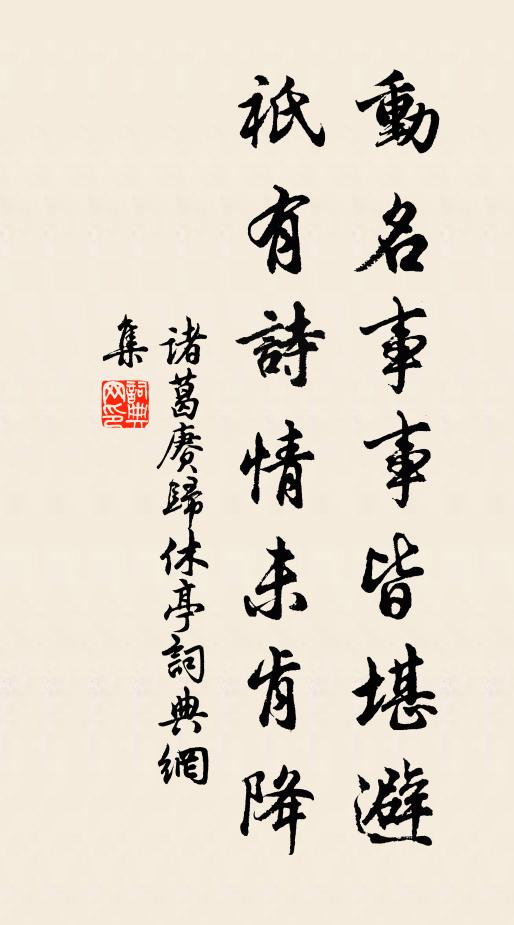 動名事事皆堪避
祇有詩情未肯降
諸葛賡歸休亭詞典網
集
詞典
网印